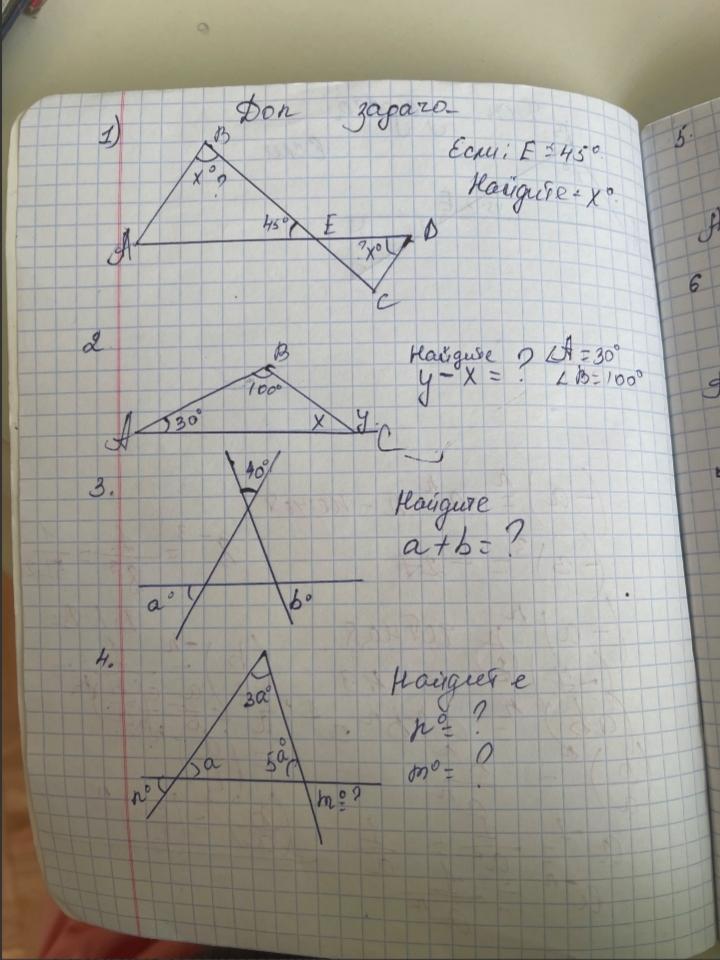 Доп задача
1)
B
x°?
45°
E
A
?x°
D
C
Если: E = 45°
Найдите = x°
2
B
100°
A
30°
x
y
C
Найдите ? ∠A = 30°
y - x = ∠B = 100°
3.
40°
a°
b°
Найдите
a + b = ?
4.
3a°
n°
a
5a°
m° = ?
Найдите
n° = ?
m° = ?
5.
6